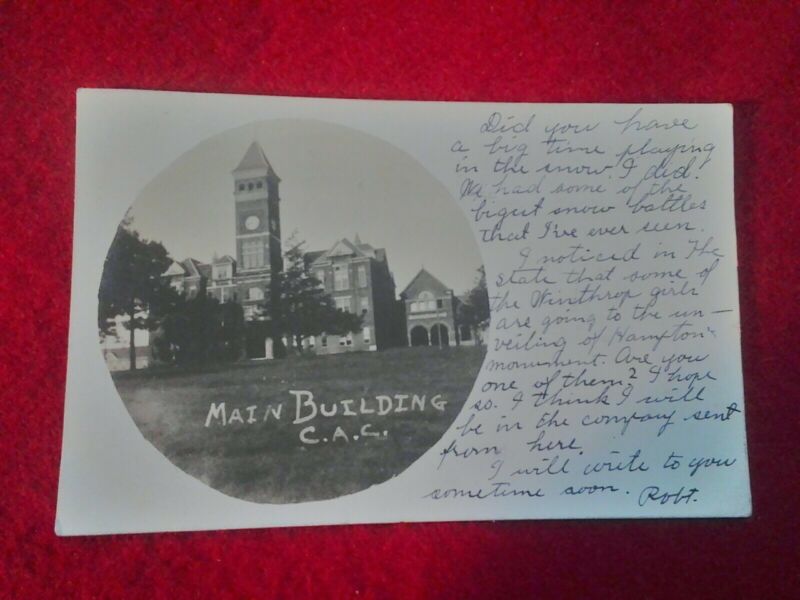 MAIN BUILDING
C.A.C.
Did you have
a big time playing
in the snow. I did.
We had some of the
bigest snow battles
that I've ever seen.
I noticed in The
state that some of
the Winthrop girls
are going to the un-
veiling of Hampton
monument. Are you
one of them? I hope
so. I think I will
be in the company sent
from here.
I will write to you
sometime soon. Robt.